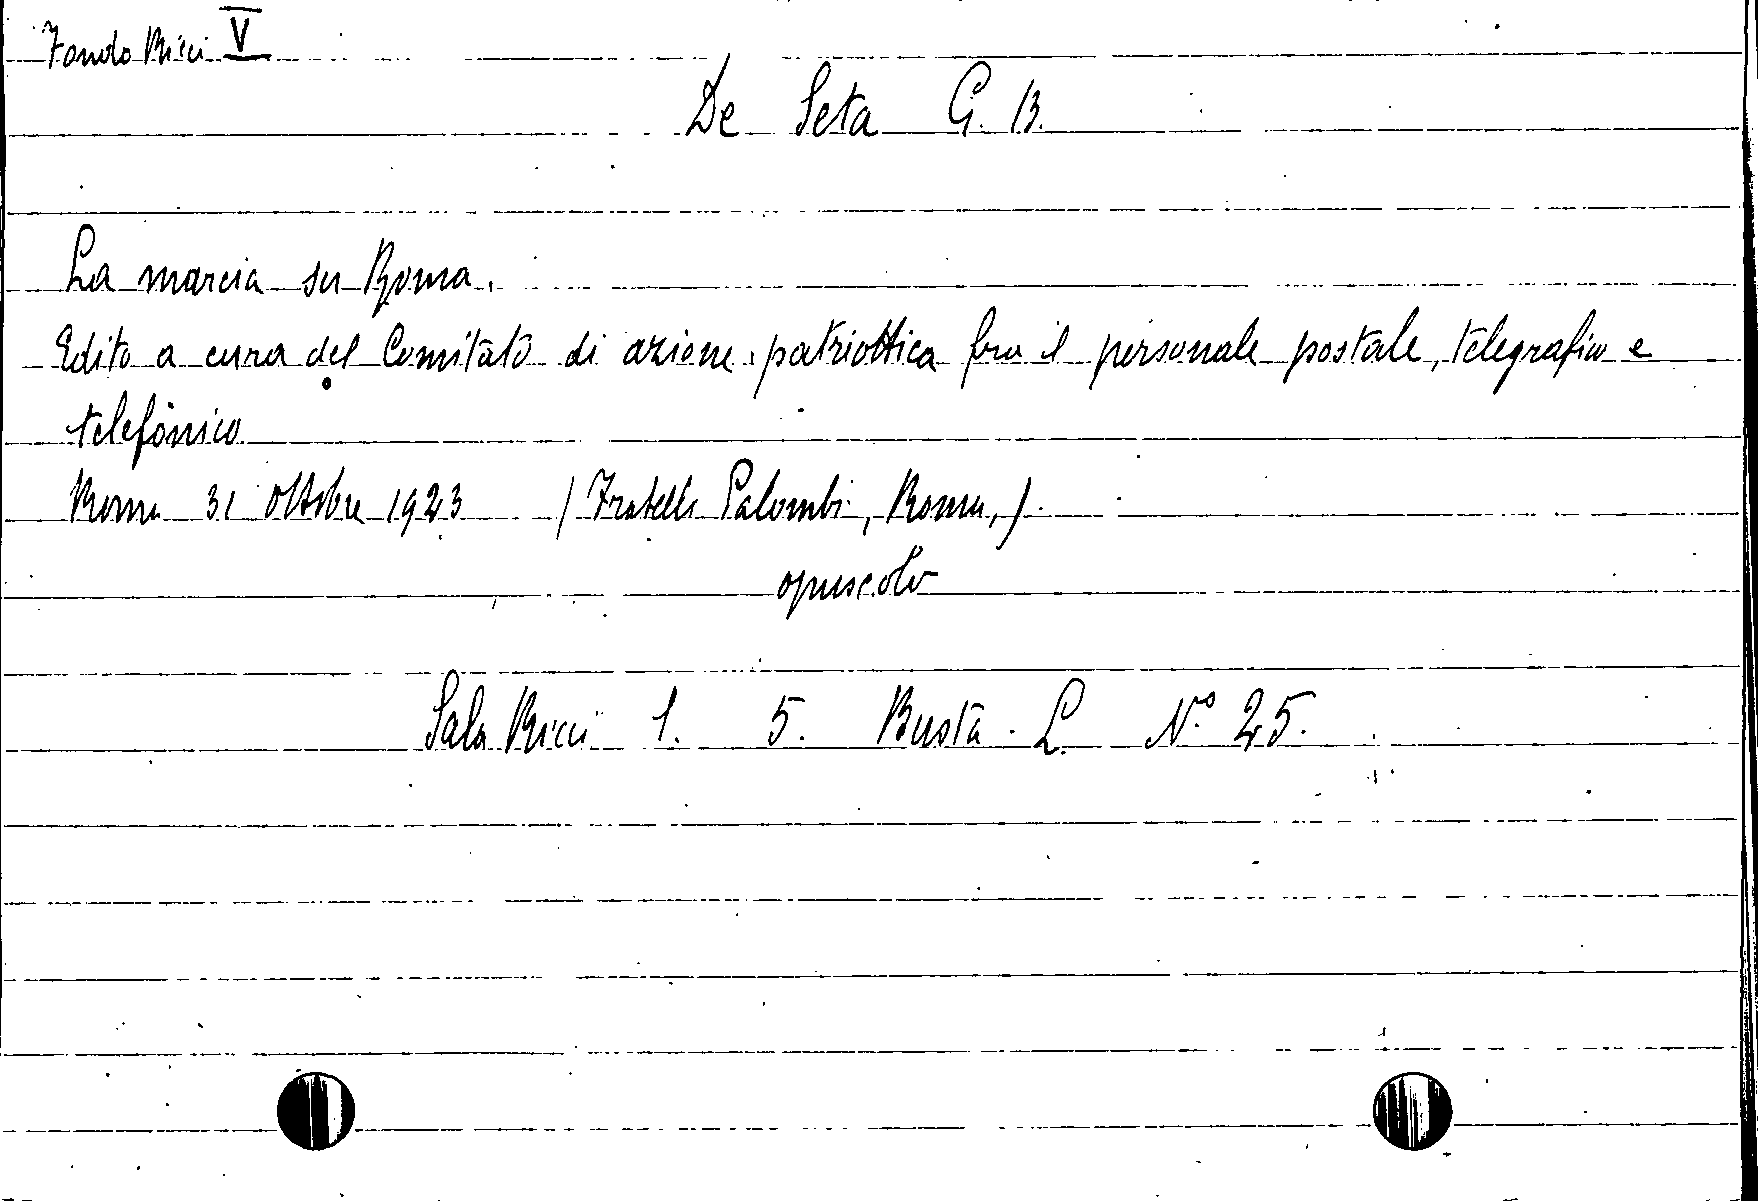 Fondo Ricci V
De Seta G. B.
La marcia su Roma.
Edito a cura del Comitato di azione patriottica fra il personale postale, telegrafico e
telefonico
Roma 31 ottobre 1923 (Fratelli Palombi, Roma,).
opuscolo
Sala Ricci 1. 5. Busta. L. N.° 25.